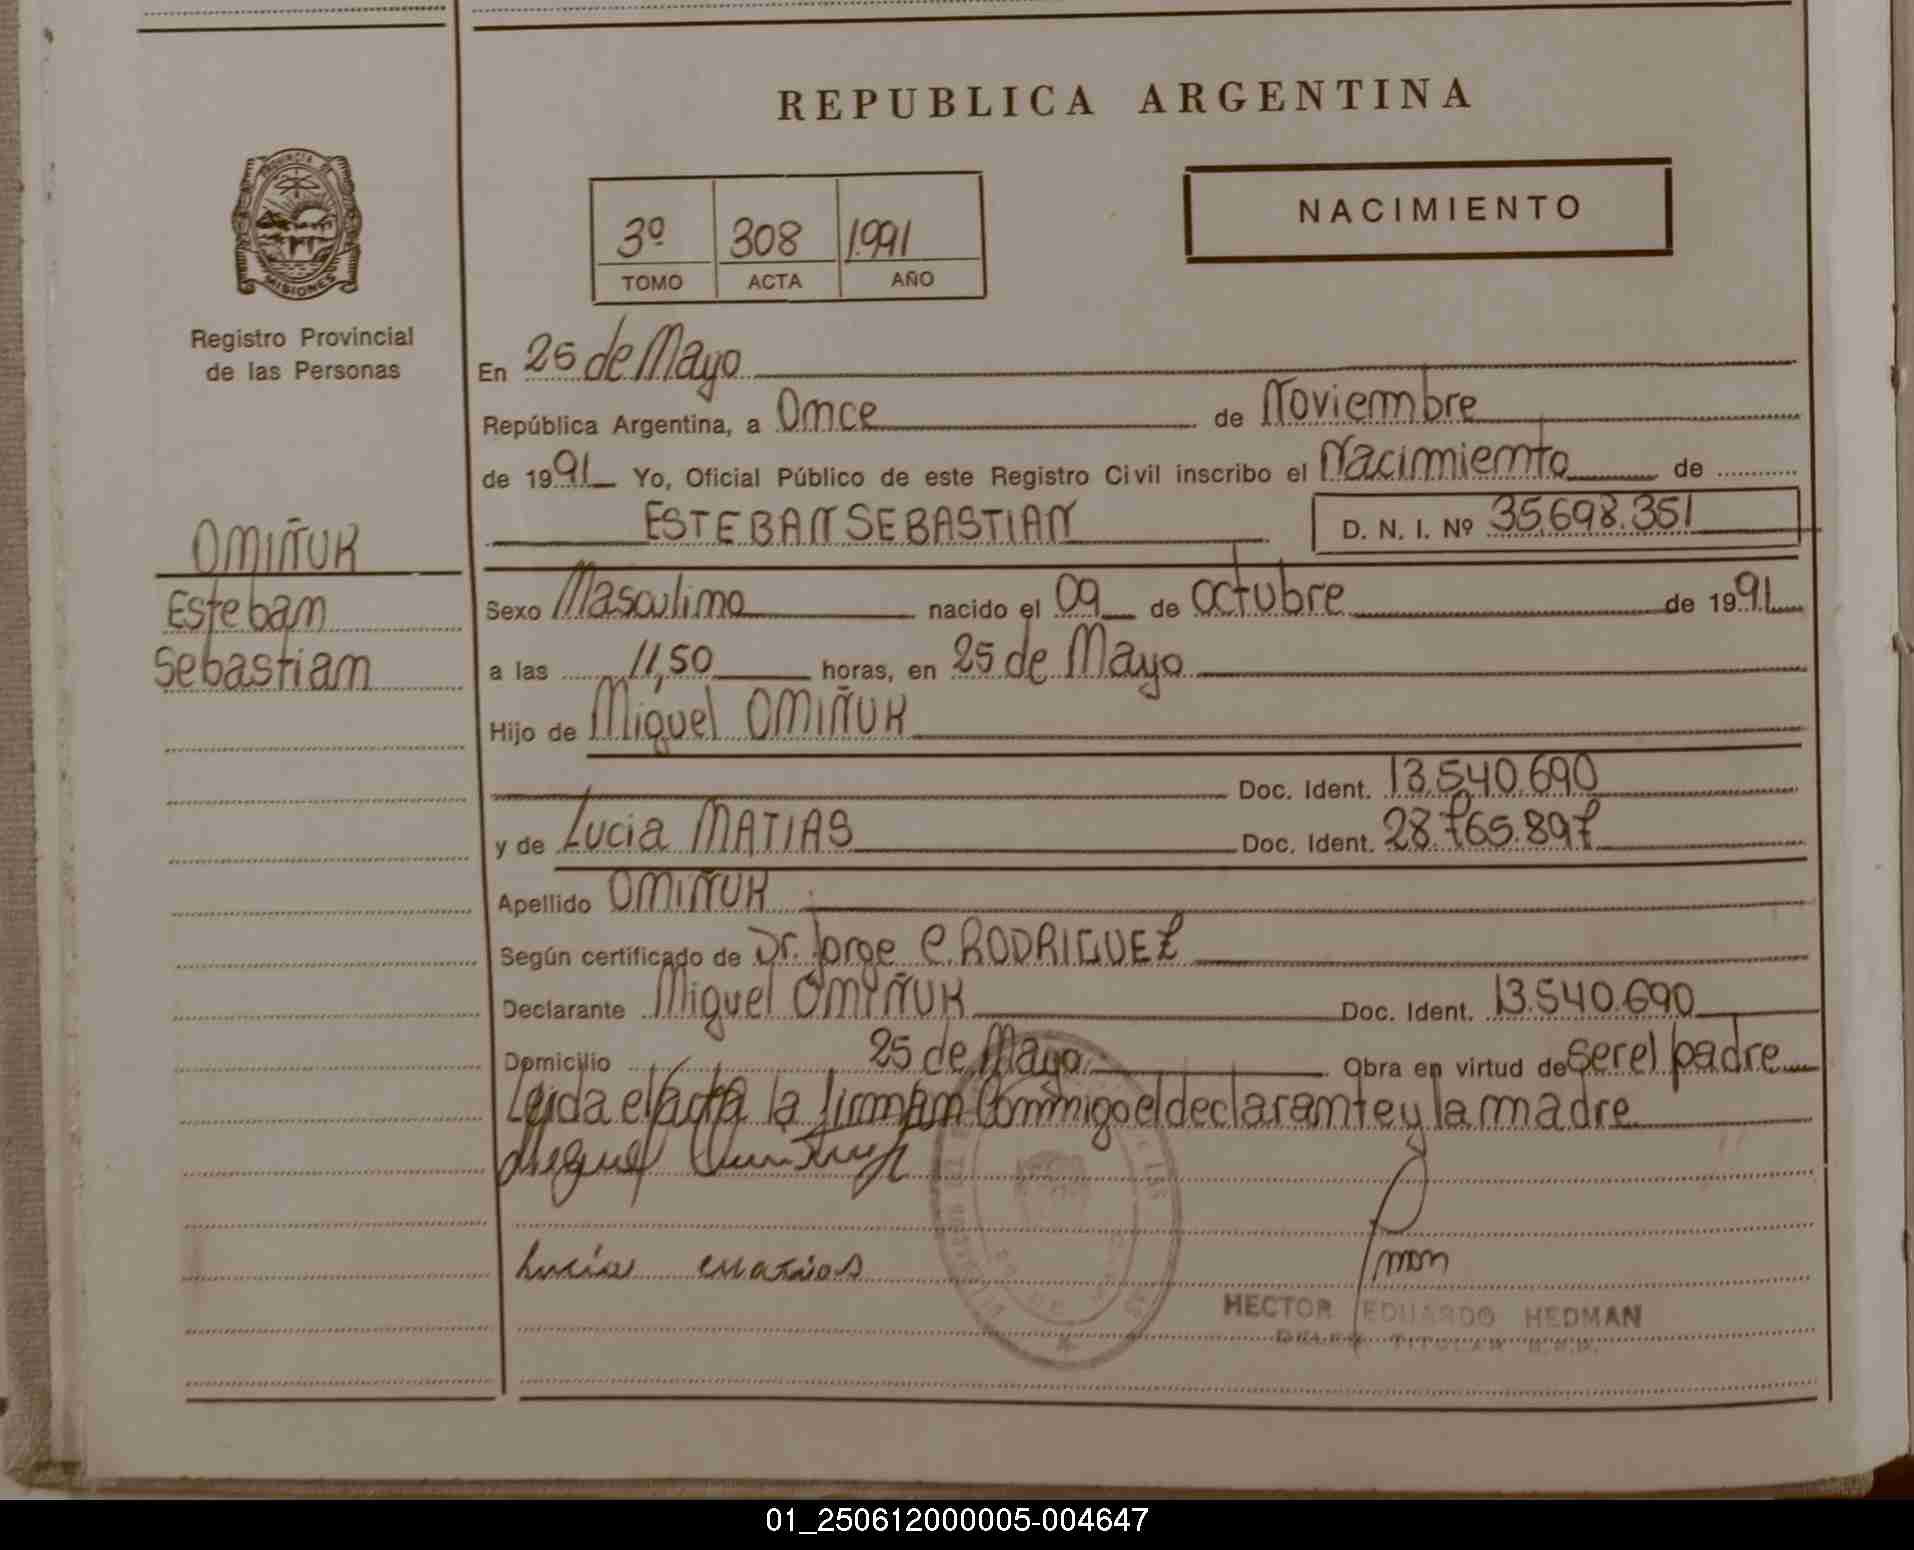 REPUBLICA ARGENTINA
PROVINCIA DE
MISIONES
Registro Provincial
de las Personas
3º 308 1991
TOMO ACTA AÑO
NACIMIENTO
En 25 de Mayo
República Argentina, a Once de Noviembre
de 1991 Yo, Oficial Público de este Registro Civil inscribo el Nacimiento de
ESTEBAN SEBASTIAN D. N. I. Nº 35.698.351
OMIÑUK
Esteban
Sebastian
Sexo Masculino nacido el 09 de octubre de 1991
a las 11,50 horas, en 25 de Mayo
Hijo de Miguel OMIÑUK
Doc. Ident. 13.540.690
y de Lucia MATIAS Doc. Ident. 28.765.897
Apellido OMIÑUK
Según certificado de Dr. Jorge C. RODRIGUEZ
Declarante Miguel OMIÑUK Doc. Ident. 13.540.690
Domicilio 25 de Mayo Obra en virtud de ser el padre
Leida el acta la firman Conmigo el declarante y la madre
Miguel
Lucia Matias
HECTOR EDUARDO HEDMAN
TITULAR
01_250612000005-004647